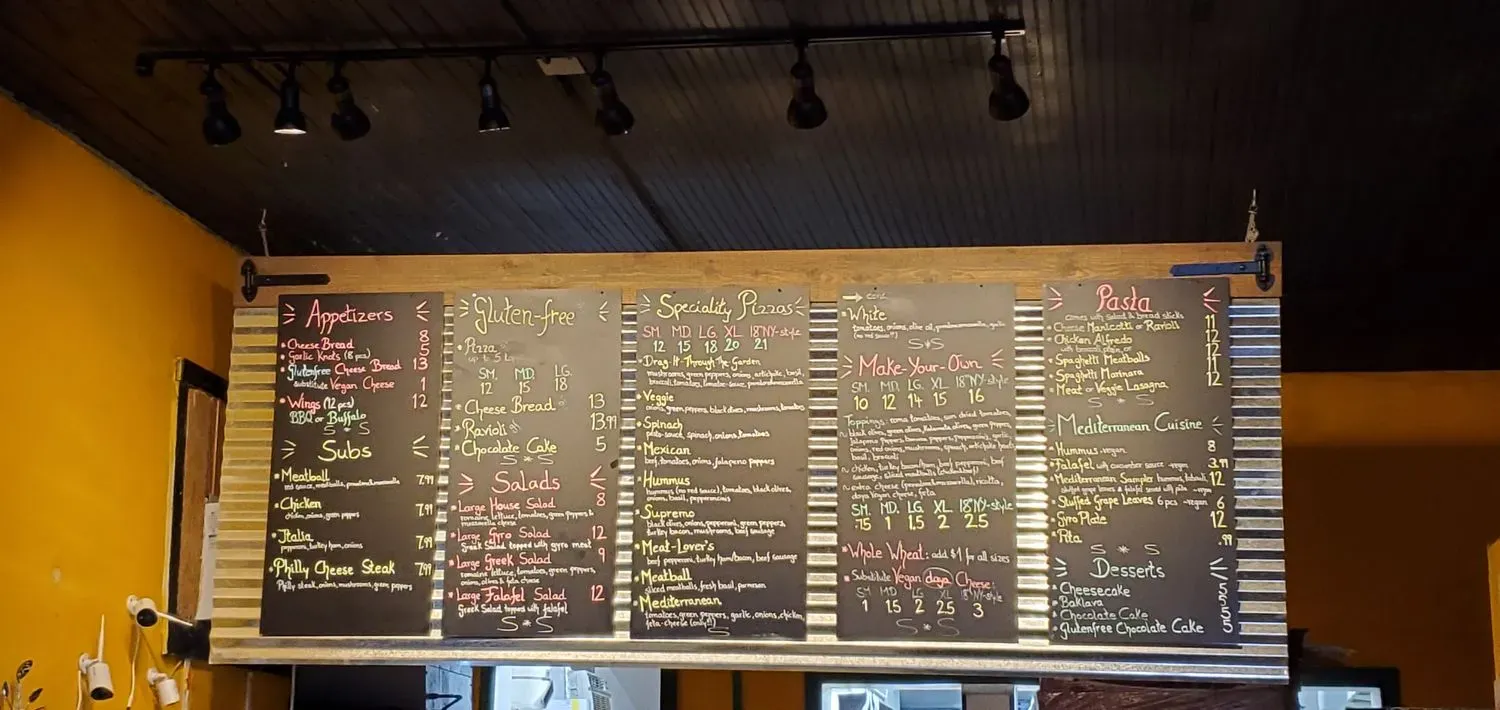 Appetizers
Cheese Bread 8
Garlic Knots (8 pcs) 5
Glutenfree Cheese Bread 13
substitute Vegan Cheese 1
Wings (12 pcs) 12
BBQ or Buffalo
S * S
Subs
Meatball 7.99
red sauce, meatballs,
Chicken 7.99
chicken, onions, green peppers
Italia 7.99
pepperoni, turkey ham, onions
Philly Cheese Steak 7.99
Philly steak, onions, mushrooms, green peppers
Gluten-free
Pizza
SM. MD. LG.
12 15 18
Cheese Bread 13
Ravioli 13.99
Chocolate Cake 5
S * S
Salads
Large House Salad 8
romaine lettuce, tomatoes, green peppers &
mozzarella cheese
Large Gyro Salad 12
Greek Salad topped with gyro meat
Large Greek Salad 9
romaine lettuce, tomatoes, green peppers,
onions, olives & feta cheese
Large Falafel Salad 12
Greek Salad topped with falafel
S * S
Speciality Pizzas
SM. MD. LG. XL 18"NY-style
12 15 18 20 21
Drag-It-Through-The-Garden
mushrooms, green peppers, onions, artichoke, basil,
broccoli, tomatoes, tomatoe-sauce,
Veggie
onions, green peppers, black olives, mushrooms, tomatoes
Spinach
pesto-sauce, spinach, onions, tomatoes
Mexican
beef, tomatoes, onions, jalapeno peppers
Hummus
hummus (no red sauce), tomatoes, black olives,
onions, basil, pepperoncinis
Supremo
black olives, onions, pepperoni, green peppers,
turkey bacon, mushrooms, beef sausage
Meat-Lover's
beef pepperoni, turkey ham/bacon, beef sausage
Meatball
sliced meatballs, fresh basil, parmesan
Mediterranean
tomatoes, green peppers, garlic, onions, chicken,
feta-cheese (only!!)
S
→ cont.
White
tomatoes, onions, olive oil, garlic
(no red sauce!!)
S * S
Make-Your-Own
SM. MD. LG. XL 18"NY-style
10 12 14 15 16
Toppings: roma tomatoes, sun dried tomatoes,
black olives, green olives, Kalamata olives, green peppers,
jalapeno peppers, banana peppers, pepperoncini, garlic,
onions, red onions, mushrooms, spinach, artichoke hearts,
basil, broccoli
~ chicken, turkey bacon/ham, beef pepperoni, beef
sausage, sliced meatballs
~ extra cheese ricotta,
daya vegan cheese, feta
SM. MD. LG. XL 18"NY-style
.75 1 1.5 2 2.5
Whole Wheat: add $1 for all sizes
Substitute Vegan daya Cheese:
SM MD LG XL 18"NY-style
1 1.5 2 2.5 3
S * S
Pasta
comes with salad & bread sticks
Cheese Manicotti or Ravioli 11
Chicken Alfredo 12
with broccoli, plain, or
Spaghetti Meatballs
Spaghetti Marinara 11
Meat or Veggie Lasagna 12
S * S
Mediterranean Cuisine
Hummus -vegan 8
Falafel with cucumber sauce -vegan 3.99
Mediterranean Sampler hummus, 12
stuffed grape leaves & falafel served with pita -vegan
Stuffed Grape Leaves 6 pcs -vegan 6
Gyro Plate 12
Pita .99
S * S
Desserts
Cheesecake 5
Baklava 5
Chocolate Cake 5
Glutenfree Chocolate Cake 5